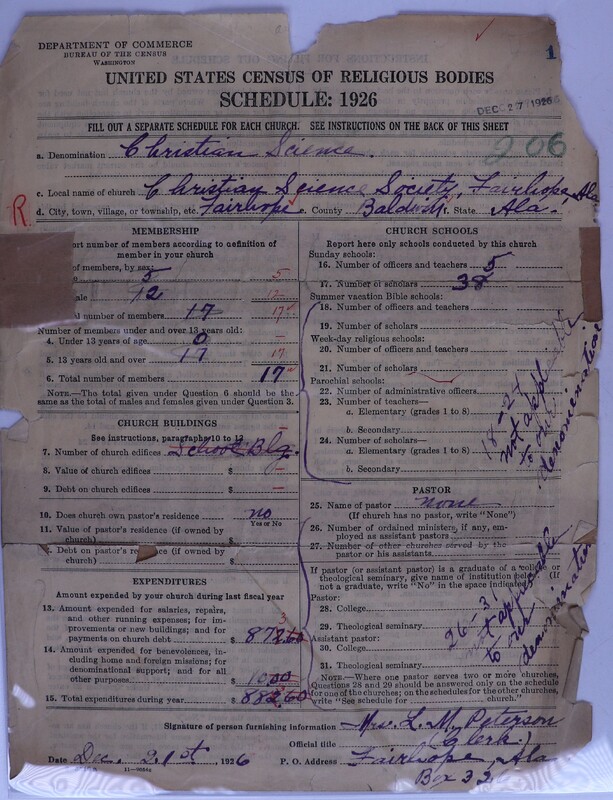 DEPARTMENT OF COMMERCE
BUREAU OF THE CENSUS
WASHINGTON
1
UNITED STATES CENSUS OF RELIGIOUS BODIES
SCHEDULE: 1926
DEC 27 1926
FILL OUT A SEPARATE SCHEDULE FOR EACH CHURCH. SEE INSTRUCTIONS ON THE BACK OF THIS SHEET
206
a. Denomination Christian Science.
c. Local name of church Christian Science Society, Fairhope, Ala
R. d. City, town, village, or township, etc. Fairhope e. County Baldwin State Ala.
MEMBERSHIP
port number of members according to definition of
member in your church
of members, by sex:
5 5
ale 12 12
l number of members 17 17
Number of members under and over 13 years old:
4. Under 13 years of age 0 –
5. 13 years old and over 17 17
6. Total number of members 17
NOTE.—The total given under Question 6 should be the
same as the total of males and females given under Question 3.
CHURCH BUILDINGS
See instructions, paragraphs 10 to 13
7. Number of church edifices School Blg. –
8. Value of church edifices $ –
9. Debt on church edifices $ –
10. Does church own pastor's residence no
Yes or No
11. Value of pastor's residence (if owned by
church) $
12. Debt on pastor's residence (if owned by
church) $
EXPENDITURES
Amount expended by your church during last fiscal year
13. Amount expended for salaries, repairs,
and other running expenses; for im-
provements or new buildings; and for
payments on church debt $ 872.60 3
14. Amount expended for benevolences,
including home and foreign missions; for
denominational support; and for all
other purposes 10.00
15. Total expenditures during year $ 882.60
CHURCH SCHOOLS
Report here only schools conducted by this church
Sunday schools:
16. Number of officers and teachers 5
17. Number of scholars 38
Summer vacation Bible schools:
18. Number of officers and teachers
19. Number of scholars
Week-day religious schools:
20. Number of officers and teachers
21. Number of scholars
Parochial schools:
22. Number of administrative officers
23. Number of teachers—
a. Elementary (grades 1 to 8)
b. Secondary
24. Number of scholars—
a. Elementary (grades 1 to 8)
b. Secondary
18-24
not applicable
to our
denomination
PASTOR
25. Name of pastor none
(If church has no pastor, write "None")
26. Number of ordained ministers, if any, em-
ployed as assistant pastors
27. Number of other churches served by the
pastor or his assistants
If pastor (or assistant pastor) is a graduate of a college or
theological seminary, give name of institution below. (If
not a graduate, write "No" in the space indicated)
Pastor:
28. College
29. Theological seminary
Assistant pastor:
30. College
31. Theological seminary
26-3
not applicable
to our
denomination
NOTE.—Where one pastor serves two or more churches,
Questions 28 and 29 should be answered only on the schedule
for one of the churches; on the schedules for the other churches,
write "See schedule for church."
Signature of person furnishing information Mrs. L. M. Peterson
Official title (Clerk)
Date Dec. 21st, 1926 P. O. Address Fairhope, Ala
Box 32